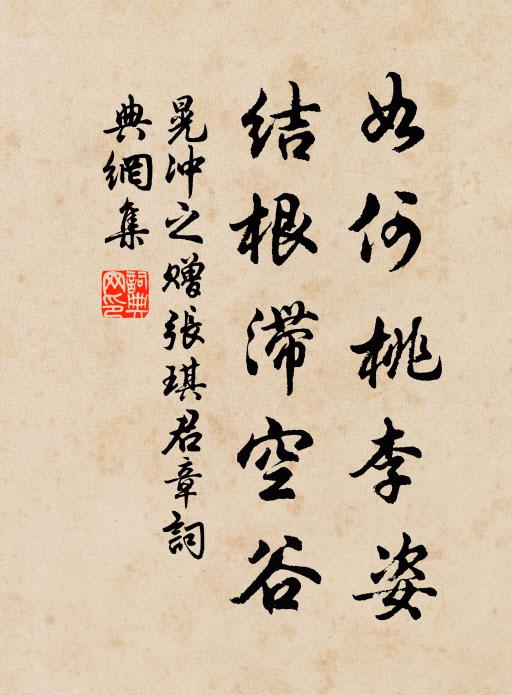 如何桃李姿
结根滞空谷
晁冲之赠张琪君章词
典網集
詞典网印